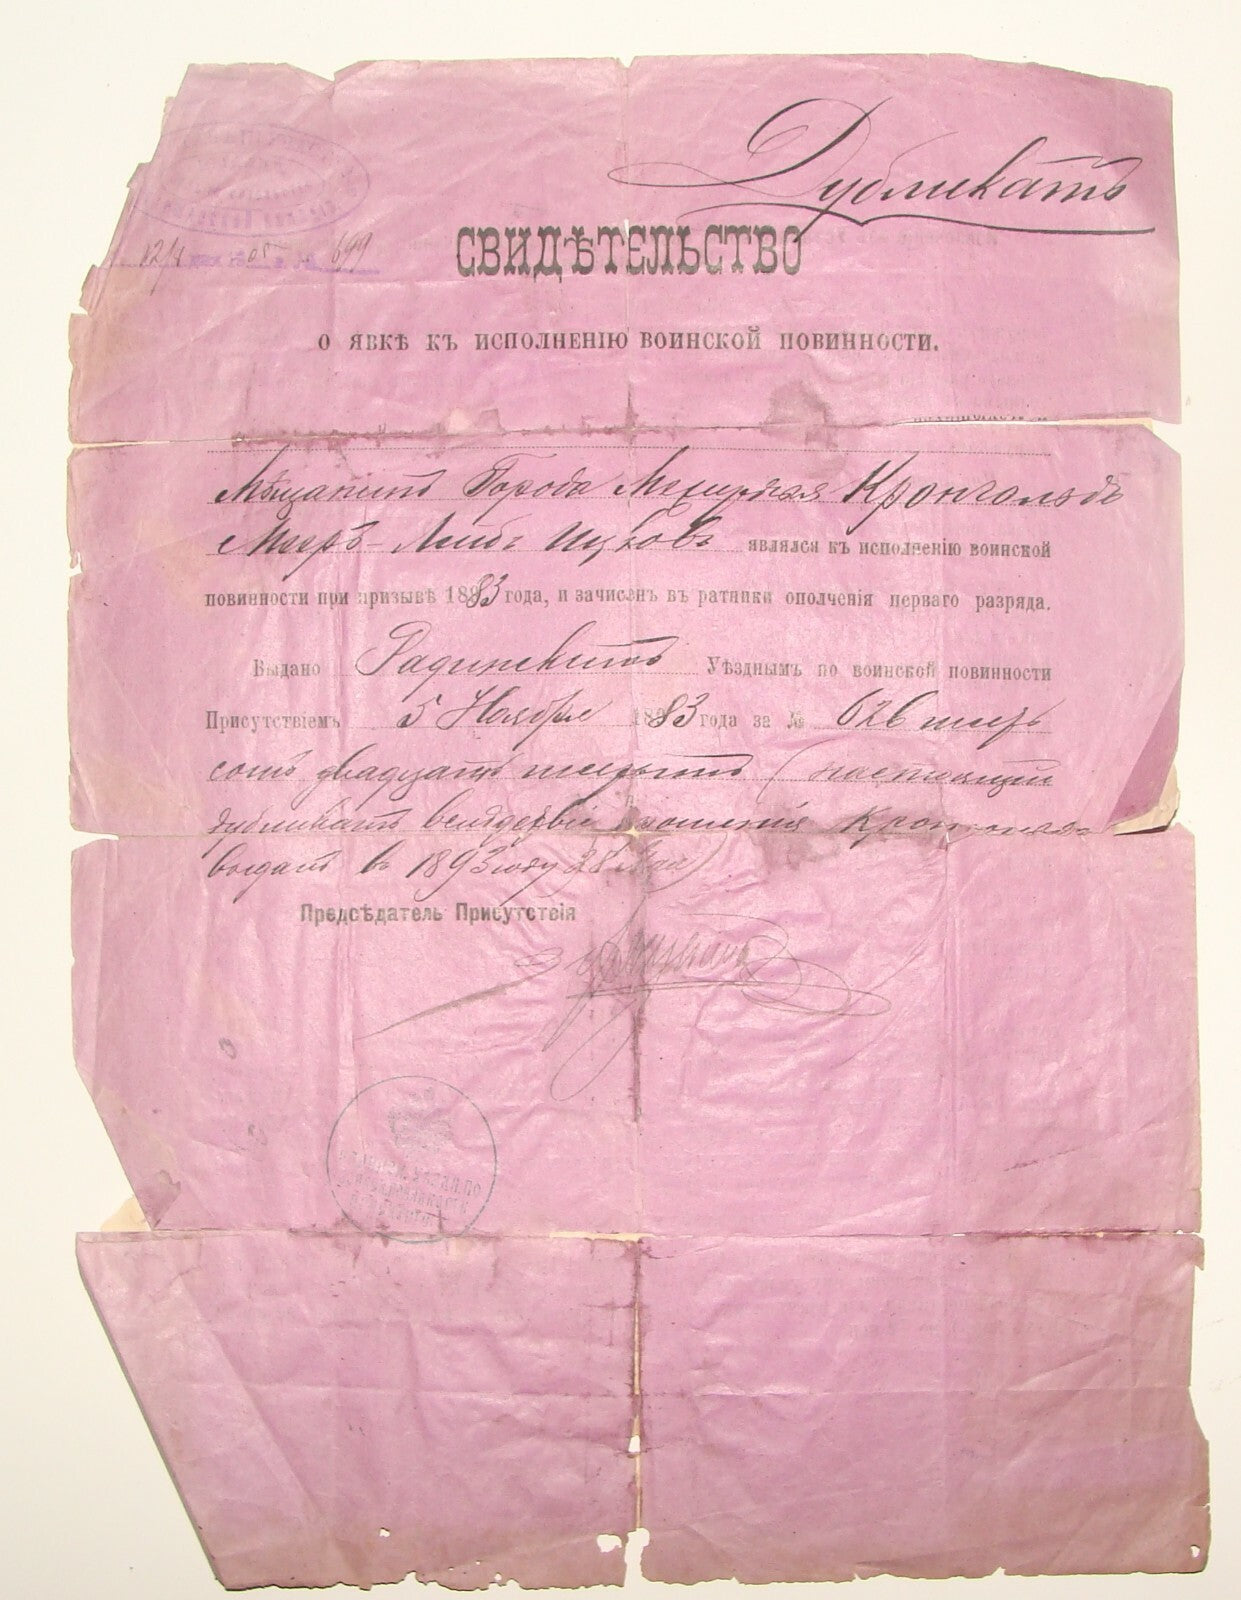 Дубликатъ
12/4 05 699
СВИДѢТЕЛЬСТВО
О ЯВКѢ КЪ ИСПОЛНЕНІЮ ВОИНСКОЙ ПОВИННОСТИ.
Мѣщанинъ Города Кронгольдъ
Мееръ-Лейбъ Ицковъ являлся къ исполненію воинской
повинности при призывѣ 1883 года, и зачисленъ въ ратники ополченія перваго разряда.
Выдано Уѣзднымъ по воинской повинности
Присутствіемъ 5 Ноября 1883 года за № 626 шесть
сотъ двадцать шестымъ (настоящій
дубликатъ вслѣдствіе прошенія
выданъ въ 1893 году 28 Мая)
Предсѣдатель Присутствія